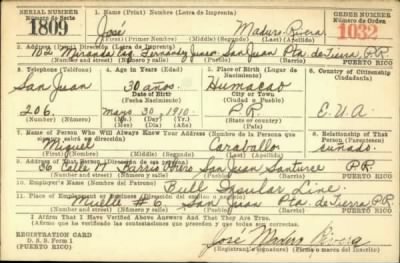 SERIAL NUMBER 1. Name (Print) Nombre (Letra de Imprenta) ORDER NUMBER
Número de Serie Número de Orden
1809 José Maduro Rivera 1032
(First) (Primer Nombre) (Middle) (Segundo Nombre) (Last) (Apellido)
2. Address (Print) Dirección (Letra de Imprenta)
102 Miranda Esq. Fernandez Juncos San Juan Pta. de tierra, P.R.
PUERTO RICO
3. Telephone (Teléfono) 4. Age in Years (Edad) 5. Place of Birth (Lugar de Nacimiento) 6. Country of Citizenship (Ciudadanía)
San Juan 30 años. Humacao
Date of Birth (Fecha Nacimiento) City or Town (Ciudad o Pueblo)
206. Mayo 30 1910. P.R. E.U.A.
(Mo.) (Day) (Yr.)
(Mes) (Día) (Año)
7. Name of Person Who Will Always Know Your Address (Nombre de la Persona que siempre sabrá su dirección) 8. Relationship of That Person (Parentesco)
Miguel Caraballo cuñado.
(First) (Primer Nombre) (Middle) (Segundo Nombre) (Last) (Apellido)
9. Address of That Person (Dirección de esa persona)
36 Calle N Barrio Obrero San Juan Santurce P.R.
PUERTO RICO
10. Employer's Name (Nombre del Patrono)
Bull Insular Line.
11. Place of Employment
Muelle # 6. San Juan Pta. de Tierra P.R.
PUERTO RICO
I Affirm That I Have Verified Above Answers And That They Are True.
(Afirmo que he verificado las contestaciones que preceden y que todas son correctas)
REGISTRATION CARD
D. S. S. Form 1
(PUERTO RICO)
José Maduro Rivera
(Registrant's signature) (Firma o marca del inscrito)